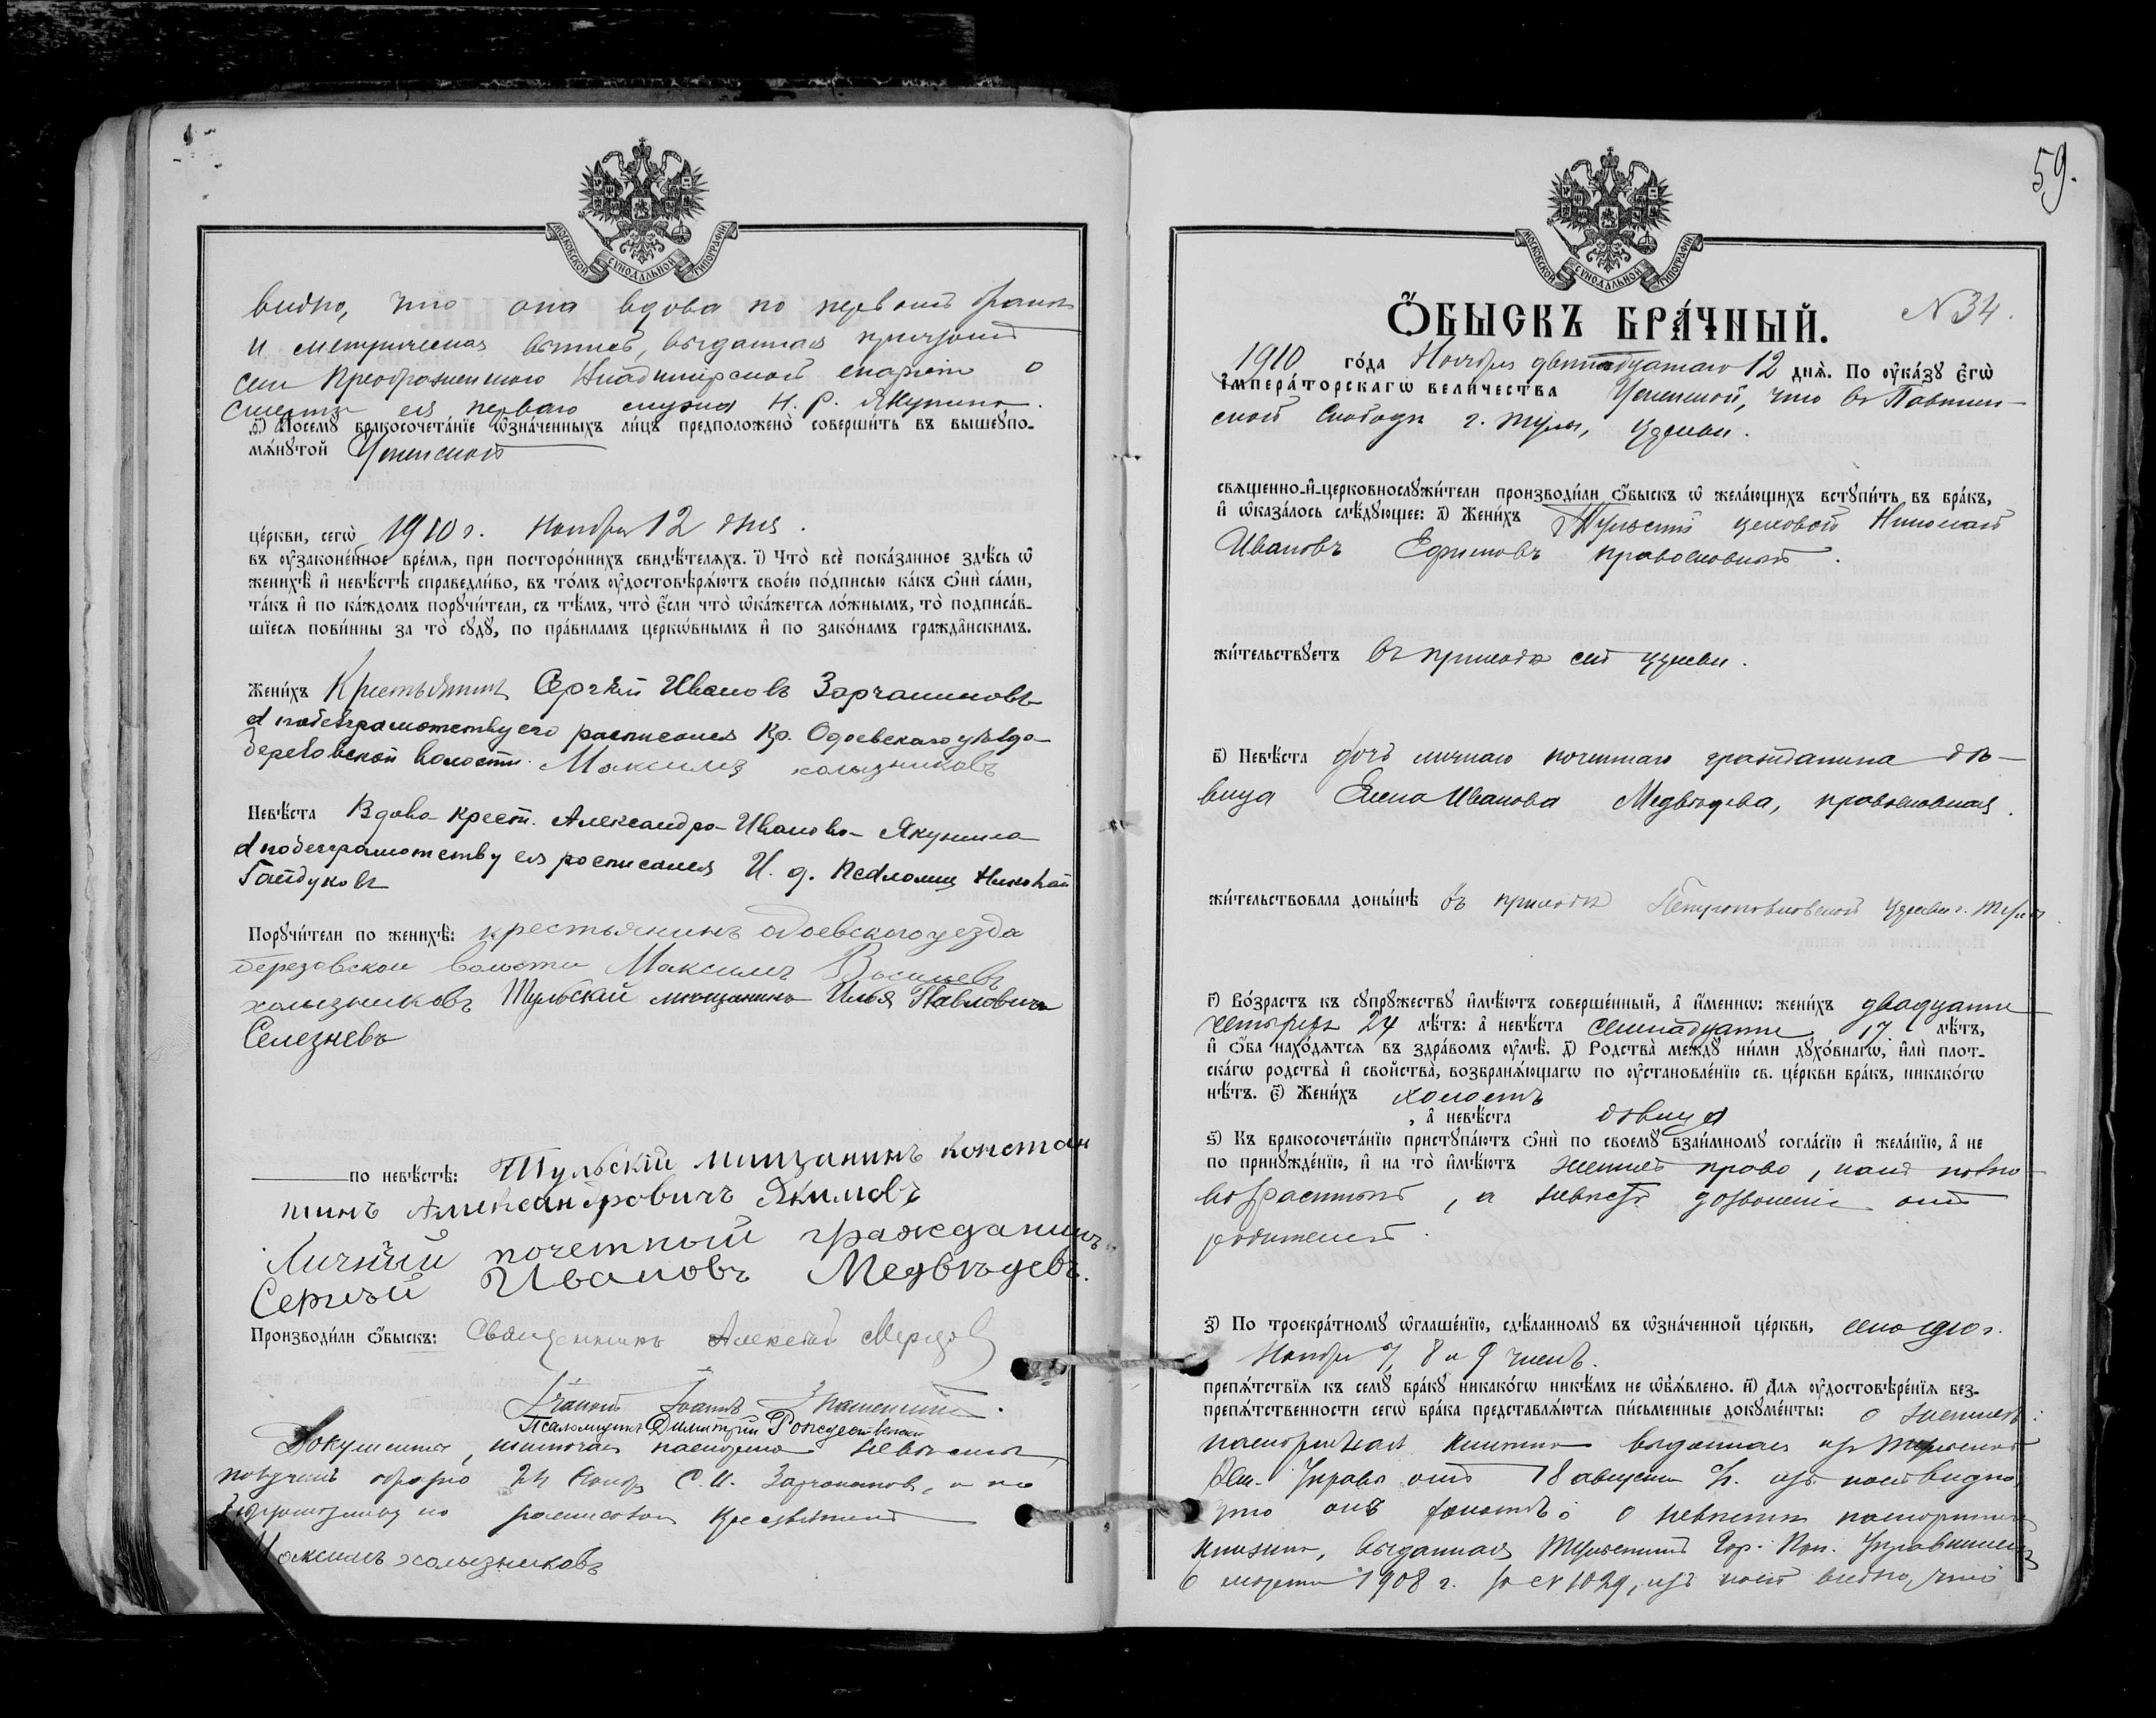 МОСКОВСКОЙ СѴНОДАЛЬНОЙ ТИПОГРАФІИ
видно, что она вдова по первомъ бракѣ
и метрическая выпись, выданная причтомъ
села Преображенскаго Владимірской епархіи о
смерти ея перваго мужа Н. Р. Якунина.
ѳ҃) Посемꙋ̀ бракосочета́нїе ѡ҆зна́ченныхъ ли́цъ предположено̀ соверши́ть въ вышеꙋпо-
мѧ́нꙋтой Успенской
це́ркви, сегѡ̀ 1910 г. Ноября 12 дня.
въ оу҆зако́ненное вре́мѧ, при посторо́ннихъ свидѣ́телѧхъ. і҃) Что̀ всѐ пока́занное здѣ́сь ѡ҆
женихѣ̀ и҆ невѣ́стѣ справедли́во, въ то́мъ оу҆достовѣрѧ́ютъ свое́ю по́дписью ка́къ ѻ҆нѝ са́ми,
та́къ и҆ по ка́ждомъ порꙋчи́тели, съ тѣ́мъ, что̀ є҆́сли что̀ ѡ҆ка́жетсѧ ло́жнымъ, то̀ подписа́в-
шїесѧ пови́нны за то̀ сꙋдꙋ̀, по пра́виламъ церкѡ́внымъ и҆ по зако́намъ гражда̑нскимъ.
Жени́хъ Крестьянинъ Сергѣй Ивановъ
а по безграмотству его расписался Кр. Одоевскаго уѣзда
волости. Максимъ холызниковъ
Невѣ́ста Вдова крест. Александра Иванова Якунина
а по безграмотству ея росписался И. д. Псаломщ Николай
Гайдуковъ
Порꙋчи́тели по женихѣ̀: крестьянинъ одоевского уезда
березовской волости Максимъ Васильевъ
холызниковъ Тульскій мѣщанинъ Илья Павловичъ
Селезневъ
по невѣ́стѣ: Тульскій мищанинъ констан
тинъ Александровичъ Якимовъ
Личный почетный гражданинъ
Сергѣй Ивановъ Медвѣдевъ.
Производи́ли ѻ҆́быскъ: Священникъ Алексѣй
Іоаннъ
Псаломщикъ Димитрій Рождественскій
Документы, паспорта невѣсты,
получилъ обратно С. И. а по
росписался крестьянинъ
Максимъ холызниковъ
59.
МОСКОВСКОЙ СѴНОДАЛЬНОЙ ТИПОГРАФІИ
Ѻ҆́БЫСКЪ БРА́ЧНЫЙ. N 34.
1910 го́да Ноября двѣнадцатаго 12 днѧ̀. По оу҆ка́зꙋ Є҆гѡ̀
І҆мпера́торскагѡ вели́чества Успенской, что въ Павшин-
ской Слободѣ г. Тулы, церкви.
свѧще́нно-и҆-церковнослꙋжи́тели производи́ли ѻ҆́быскъ ѡ҆ жела́ющихъ встꙋпи́ть въ бра́къ,
и҆ ѡ҆каза́лось слѣ́дꙋющее: а҃) Жени́хъ Тульскій цеховой Николай
Ивановъ Ефимовъ православный.
жи́тельствꙋетъ въ приходѣ сей церкви.
в҃) Невѣ́ста дочь личнаго почетнаго гражданина дѣ-
вица Елена Иванова Медвѣдева, православная.
жи́тельствовала доны́нѣ въ приходѣ Петропавловской церкви г. Тулы.
г҃) Во́зрастъ къ сꙋпрꙋ́жествꙋ и҆мѣ́ютъ соверше́нный, а҆ и҆́меннѡ: жени́хъ двадцати
четырехъ 24 лѣ́тъ: а҆ невѣ́ста семнадцати 17 лѣ́тъ,
и҆ ѻ҆́ба нахо́дѧтсѧ въ здра́вомъ оу҆мѣ̀. д҃) Родства̀ междꙋ̀ ни́ми дꙋхо́внагѡ, и҆лѝ плот-
ска́гѡ родства̀ и҆ сво́йства̀, возбранѧ́ющагѡ по оу҆становле́нїю св. це́ркви бра́къ, никако́гѡ
нѣ́тъ. є҃) Жени́хъ холостъ
, а҆ невѣ́ста дѣвица
ѕ҃) Къ бракосочета́нїю пристꙋпа́ютъ ѻ҆нѝ по своемꙋ̀ взаи́мномꙋ согла́сїю и҆ жела́нїю, а҆ не
по принꙋжде́нїю, и҆ на то̀ и҆мѣ́ютъ женихъ право, какъ полно-
возрастный, а невѣста дозволеніе отъ
родителей.
з҃) По троекра́тномꙋ ѡ҆глаше́нїю, сдѣ́ланномꙋ въ ѡ҆зна́ченной це́ркви, сего 1910 г.
Ноября 7, 8 и 9 чиселъ.
препѧ́тствїѧ къ семꙋ̀ бра́кꙋ никако́гѡ никѣ́мъ не ѡ҆б̾ѧ́влено. и҃) Длѧ оу҆достовѣре́нїѧ без-
препѧ́тственности сегѡ̀ бра́ка представлѧ́ютсѧ пи́сьменные докꙋме́нты: о женихѣ:
паспортная книжка выданная изъ Тульской
Рем. Управы отъ 18 августа с/г. изъ коей видно,
что онъ холостъ; о невѣстѣ паспортная
книжка, выданная Тульскимъ Гор. Пол. Управленіемъ
6 марта 1908 г. за N 1029, изъ коей видно, что